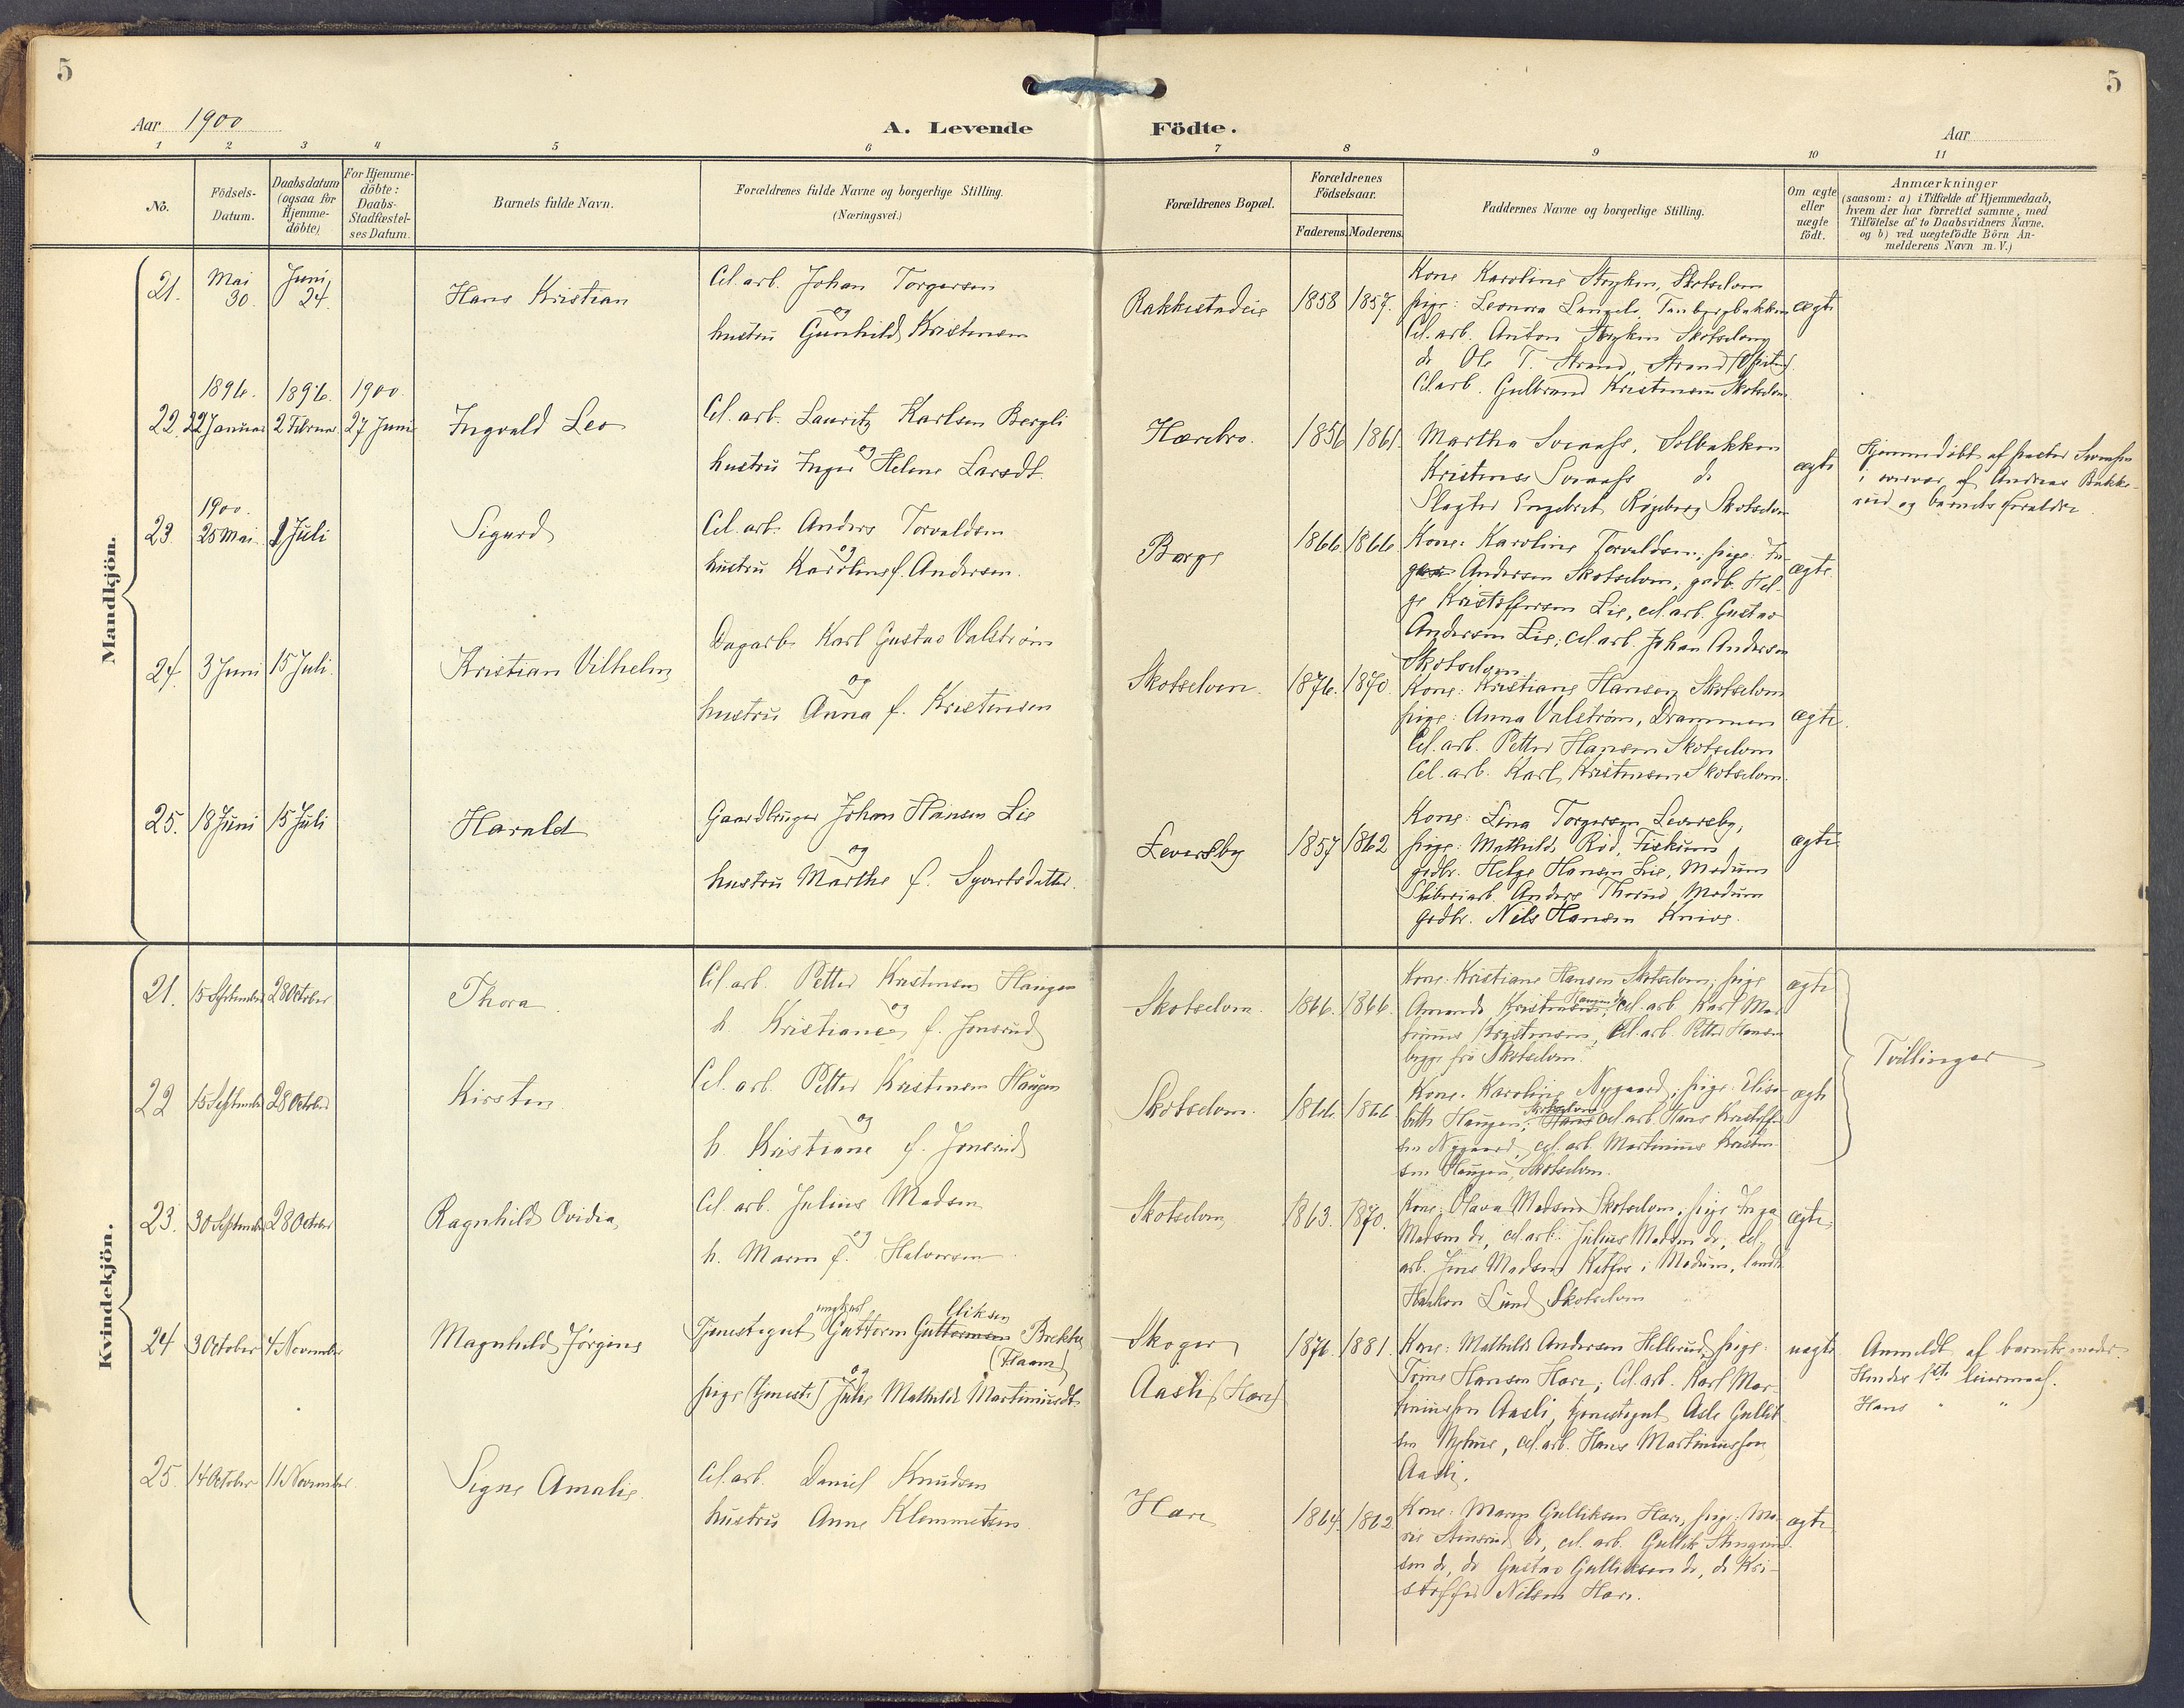 5
5
Aar 1900
A. Levende Födte.
Aar
1 2 3 4 5 6 7 8 9 10 11
No.
Födsels-Datum.
Daabsdatum (ogsaa for Hjemme-döbte)
For Hjemme-döbte: Daabs-Stadfæstel-ses Datum.
Barnets fulde Navn.
Forældrenes fulde Navne og borgerlige Stilling.
(Næringsvei.)
Forældrenes Bopæl.
Forældrenes Födselsaar.
Faderens. Moderens.
Faddernes Navne og borgerlige Stilling.
Om ægte eller uægte födt.
Anmærkninger
(saasom: a) i Tilfælde af Hjemmedaab,
hvem der har forrettet samme, med
Tilföielse af to Daabsvidners Navne,
og b) ved uægtefödte Börn An-
melderens Navn m. V.)
Mandkjön.
21. Mai 30. Juni 24. Hans Kristian
Cel. arb. Johan Torgersen
og
hustru Gunhild Kristensen
Rakkestadeie 1858 1857.
Kone Karoline Stryken, Skotselven
pige: Leonora
Cel. arb. Anton Stryken Skotselven
do Ole T. Strand, Strand
Cel. arb. Gulbrand Kristensen Skotselven
ægte
1896. 1896. 1900.
22. 22 Januar 2 Februar 27 Juni Ingvald Leo
Cel. arb. Lauritz Karlsen Bergli
og
hustru Inger Helene Larsdt.
Horebro. 1856 1861
Martha Solbakken
Kristense do
Slagter Engebret Skotselven
ægte
Hjemmedøbt af pastor
i overvær af Andreas Bakke-
rud og barnets forældre
1900.
23. 25 Mai 1 Juli Sigurd
Cel. arb. Anders Torvaldsen
og
hustru Karoline f. Andersen.
Borge 1866 1866
Kone: Karoline Torvaldsen, pige: In-
ga Andersen Skotselven, gadb. Hel-
ge Kristoffersen Lie, cel. arb. Gustav
Andersen Lie, cel. arb. Johan Andersen
Skotselven
ægte
24. 3 Juni 15 Juli. Kristian Vilhelm
Dagarb. Karl Gustav Valstrøm
og
hustru Anna f. Kristensen
Skotselven. 1876. 1870.
Kone: Kristiane Hansen Skotselven
pige: Anna Valstrøm, Drammen
Cel. arb. Petter Hansen Skotselven
Cel. arb. Karl Kristensen Skotselven.
ægte.
25. 18 Juni 15 Juli Harald
Gaardbruger Johan Hansen Lie
og
hustru Marthe f. Syvertsdatter.
Leversby 1857 1862
Kone: Lina Torgersen Leversby,
pige: Mathilde Rød, Fiskum
gdbr. Helge Hansen Lie, Modum
Sliberiarb. Anders Thorud, Modum
gdbr. Nils Hansen Knive.
ægte
Kvindekjön.
21. 15 September 28 October Thora
Cel. arb. Petter Kristensen Haugen
og
h. Kristiane f. Jonsrud
Skotselven. 1866. 1866.
Kone: Kristiane Hansen Skotselven, pige
Amanda Kristensen, cel. arb. Karl Mar-
tinius Kristensen, Cel. arb. Petter Hansen
begge fra Skotselven.
ægte
Tvillinger
22 15 September 28 October Kirsten
Cel. arb. Petter Kristensen Haugen
og
h. Kristiane f. Jonsrud
Skotselven. 1866 1866
Kone: Karoline Nygaard, pige: Elisa-
beth Haugen, Skotselven cel. arb. Hans Kristoffer-
sen Nygaard, cel. arb. Martinius Kristen-
sen Haugen, Skotselven.
ægte
23. 30 September 28 October Ragnhild Ovidia
Cel. arb. Julius Madsen
og
h. Maren f. Halvorsen
Skotselven 1863. 1870.
Kone: Olava Madsen Skotselven, pige Inga
Madsen do, cel. arb. Julius Madsen do, cel.
arb. Jens Madsen Katfos i Modum, landh.
Haakon Lund Skotselven
ægte.
24 3 October 4 November Magnhild Jørgine
ungkarl lliksen
Tjenestegut Guttorm Guttormsen Brekke
(Flaam)
og
pige (tjeneste) Julie Mathilde Martiniusdt.
Skoger
Aasli (Hare)
1876. 1881.
Kone: Mathilde Andersen Hellerud, pige:
Trine Hansen Hare, Cel. arb. Karl Mar-
tiniussen Aasli, tjenestegut Asle Gullik-
sen Myhre, cel. arb. Hans Martiniussen
Aasli.
uægte
Anmeldt af barnets moder.
Hendes 1ste leiermaal.
Hans " "
25. 14 October 11 November Signe Amalie.
Cel. arb. Daniel Knudsen
hustru Anne Klemmetsen
Hare 1864. 1862
Kone: Maren Gulliksen Hare, pige: Ma-
rie Stensrud do, cel. arb. Gullik Stengrim-
sen do, do Gustav Gulliksen do, do Kri-
stoffer Nilsen Hare.
ægte